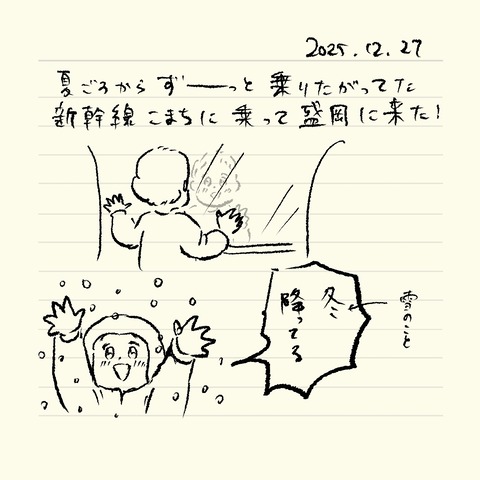 2025.12.27
夏ごろから ずーーっと 乗りたがってた
新幹線 こまちに 乗って 盛岡に来た!
冬
降ってる
雪のこと